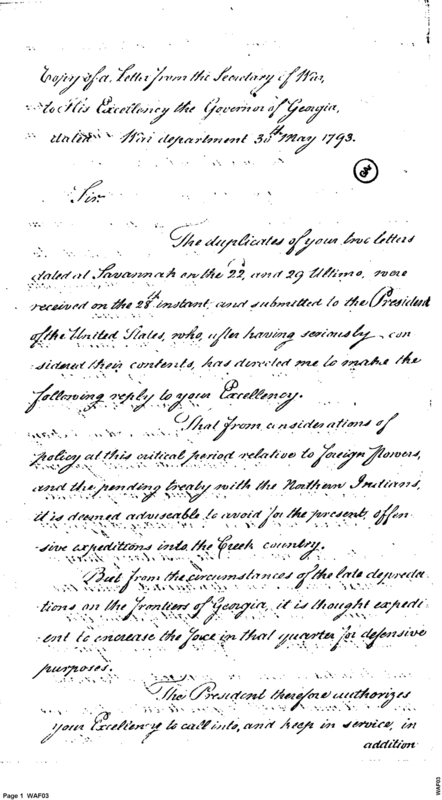 Copy of a Letter from the Secretary of War,
to His Excellency the Governor of Georgia,
dated War department 30th May 1793.
Sir
The duplicates of your two letters
dated at Savannah on the 22, and 29 Ultimo, were
received on the 28th instant, and submitted to the President
of the United States, who, after having seriously con
sidered their contents, has directed me to make the
following reply to your Excellency.
That from considerations of
policy at this critical period relative to foreign powers,
and the pending treaty with the Northern Indians,
it is deemed adviseable to avoid for the present, offen
sive expeditions into the Creek country.
But from the circumstances of the late depreda
tions on the frontiers of Georgia, it is thought expedi
ent to encrease the force in that quarter for defensive
purposes.
The President therefore authorizes
your Excellency to call into, and keep in service, in
addition
Page 1 WAF03
WAF03